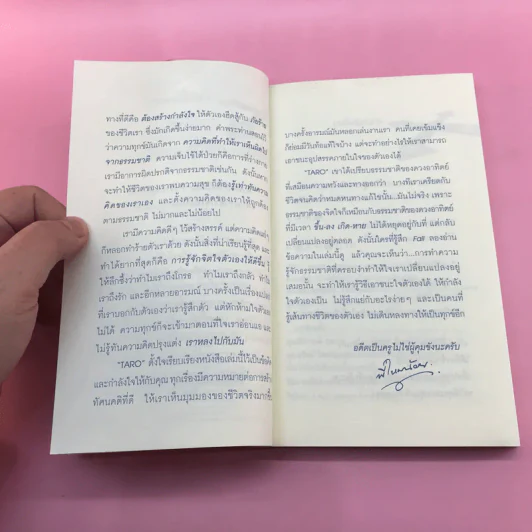 ทางที่ดีคือ ต้องสร้างกำลังใจ ให้ตัวเองฮึดสู้กับ
ของชีวิตเรา ซึ่งมักเกิดขึ้นง่ายมาก คำพระท่านสอนไว้
ว่าความทุกข์มันเกิดจาก ความคิดที่ทำให้เราเดินผิดไป
จากธรรมชาติ ความเจ็บไข้ได้ป่วยก็คือการที่ร่างกาย
เรามีอาการผิดปรกติจากธรรมชาติเช่นกัน ดังนั้นหาก
จะทำให้ชีวิตของเราพบความสุข ก็ต้องรู้เท่าทันความ
คิดของเราเอง และตั้งความคิดของเราให้ถูกต้อง
ตามธรรมชาติ ไม่มากและไม่น้อยไป
เรามีความคิดดีๆ ไว้สร้างสรรค์ แต่ความคิดแย่ๆ
ก็หลอกทำร้ายตัวเราด้วย ดังนั้นสิ่งที่น่าเรียนรู้ที่สุด และ
ทำได้ยากที่สุดก็คือ การรู้จักจิตใจตัวเองให้ดีขึ้น รู้
ให้ลึกซึ้งว่าทำไมเราถึงโกรธ ทำไมเราถึงกลัว ทำไม
เราถึงรัก และอีกหลายอารมณ์ บางครั้งเป็นเรื่องแปลก
ที่เราบอกกับตัวเองว่าเรารู้สึกตัว แต่หักห้ามใจตัวเอง
ไม่ได้ ความทุกข์ก็จะเข้ามาตอนที่ใจเราอ่อนแอ และ
ไม่รู้ทันความคิดปรุงแต่ง เราหลงไปกับมัน
"TARO" ตั้งใจเรียบเรียงหนังสือเล่มนี้ไว้เป็นข้อคิด
และกำลังใจให้กับคุณ ทุกเรื่องมีความหมายต่อการสร้าง
ทัศนคติที่ดี ให้เราเห็นมุมมองของชีวิตจริงมากขึ้น
บางครั้งอารมณ์มันหลอกเล่นงานเรา คนที่เคยเข้มแข็ง
ก็ย่อมมีวันท้อแท้ใจบ้าง แต่จะทำอย่างไรให้เราสามารถ
เอาชนะอุปสรรคภายในใจของตัวเองได้
"TARO" เขาได้เปรียบธรรมชาติของดวงอาทิตย์
ที่เสมือนความหวังและทางออกว่า บางทีเราเครียดกับ
ชีวิตจนคิดว่าหมดหนทางแก้ไขนั้น...มันไม่จริง เพราะ
ธรรมชาติของจิตใจก็เหมือนกับธรรมชาติของดวงอาทิตย์
ที่มีเวลา ขึ้น-ลง เกิด-หาย ไม่ได้หยุดอยู่กับที่ แต่กลับ
เปลี่ยนแปลงอยู่ตลอด ดังนั้นใครที่รู้สึก Fail ลองอ่าน
ข้อความในเล่มนี้ดู แล้วคุณจะเห็นว่า...การทำความ
รู้จักธรรมชาติที่ครอบงำทำให้ใจเราเปลี่ยนแปลงอยู่
เสมอนั้น จะทำให้เรารู้วิธีเอาชนะใจตัวเองได้ ให้กำลัง
ใจตัวเองเป็น ไม่รู้สึกแย่กับอะไรง่ายๆ และเป็นคนที่
รู้เส้นทางชีวิตของตัวเอง ไม่เดินหลงทางให้เป็นทุกข์อีก
อดีตเป็นครูไม่ใช่ผู้คุมขังนะครับ